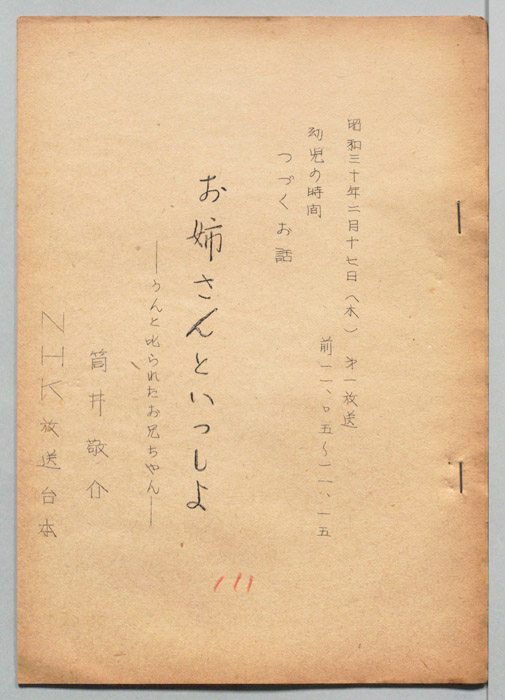 昭和三十年二月十七日（木）　第一放送
幼児の時間　前一一、〇五～一一、一五
つづくお話
お姉さんといっしよ
――うんと叱られたお兄ちやん――
筒井敬介
NHK放送台本
111